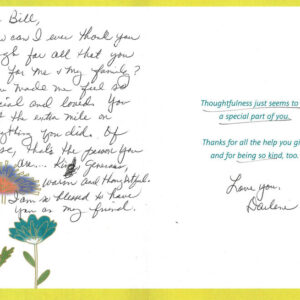 Bill,
can I ever thank you
for all that you
for me & my family?
made me feel so
and loved. You
the extra mile on
you did. Of
that's the person you
are.... Kind Generous,
warm and thoughtful.
I am so blessed to have
you as my friend.
Thoughtfulness just seems to
a special part of you.
Thanks for all the help you
and for being so kind, too.
Love you,
Darlene